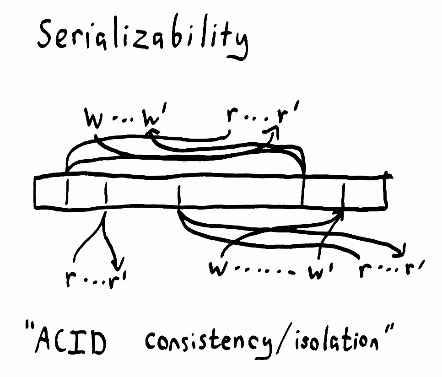 Serializability
w...w' r...r'
r...r' w.......w' r...r'
"ACID consistency/isolation"